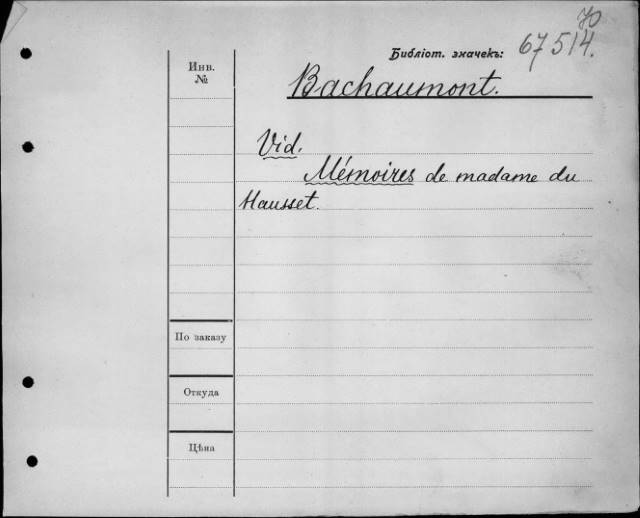 70
Библіот. значекъ: 67514.
Инв.
№
Bachaumont.
Vid.
Mémoires de madame du
Hausset.
По заказу
Откуда
Цѣна